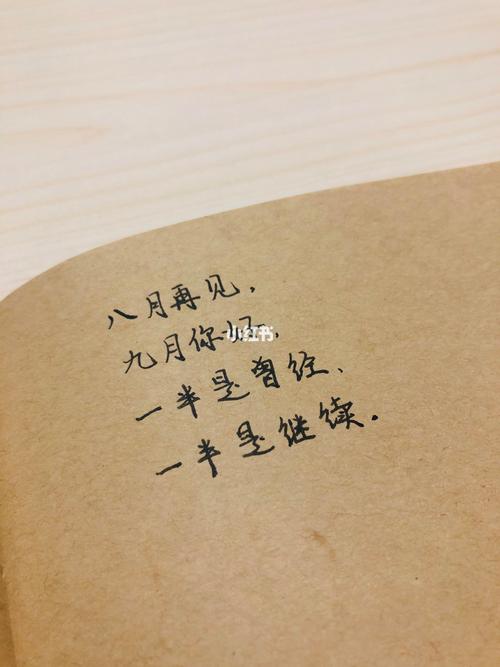 八月再见,
九月你好,
小红书
一半是曾经、
一半是继续.